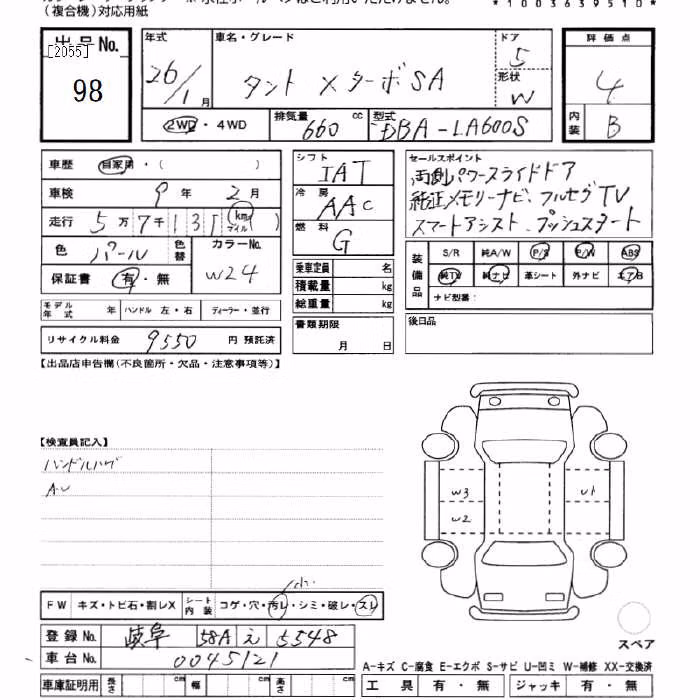 *1003639510*
(複合機)対応用紙
出品No. [2055] 98
年式 26/1月
車名・グレード タント XターボSA
ドア 5
形状 W
2WD・4WD 排気量 660 cc 型式 DBA-LA600S
評価点 4
内装 B
車歴 自家用・( )
車検 9年 2月
走行 5万7千131 km マイル
色 パール 色替 カラーNo. W24
保証書 有・無
モデル年式 年 ハンドル 左・右 ディーラー・並行
リサイクル料金 9550 円 預託済
シフト IAT
冷房 AAC
燃料 G
乗車定員 名
積載量 kg
総重量 kg
書類期限 月 日
セールスポイント
両側パワースライドドア
純正メモリーナビ、フルセグTV
スマートアシスト、プッシュスタート
装備品 S/R 純A/W P/S P/W ABS
純TV 純ナビ 革シート 外ナビ エアB
ナビ型番:
後日品
【出品店申告欄(不良箇所・欠品・注意事項等)】
【検査員記入】
ハンドルハゲ
A・U
W3 U1
W2
小
FW キズ・トビ石・割レX シート内装 コゲ・穴・汚レ・シミ・破レ・スレ
登録No. 岐阜 58A え 5548
車台No. 0045121
車庫証明用 長さ cm 幅 cm 高さ cm
スペア
A-キズ C-腐食 E-エクボ S-サビ U-凹ミ W-補修 XX-交換済
工具 有・無 ジャッキ 有・無